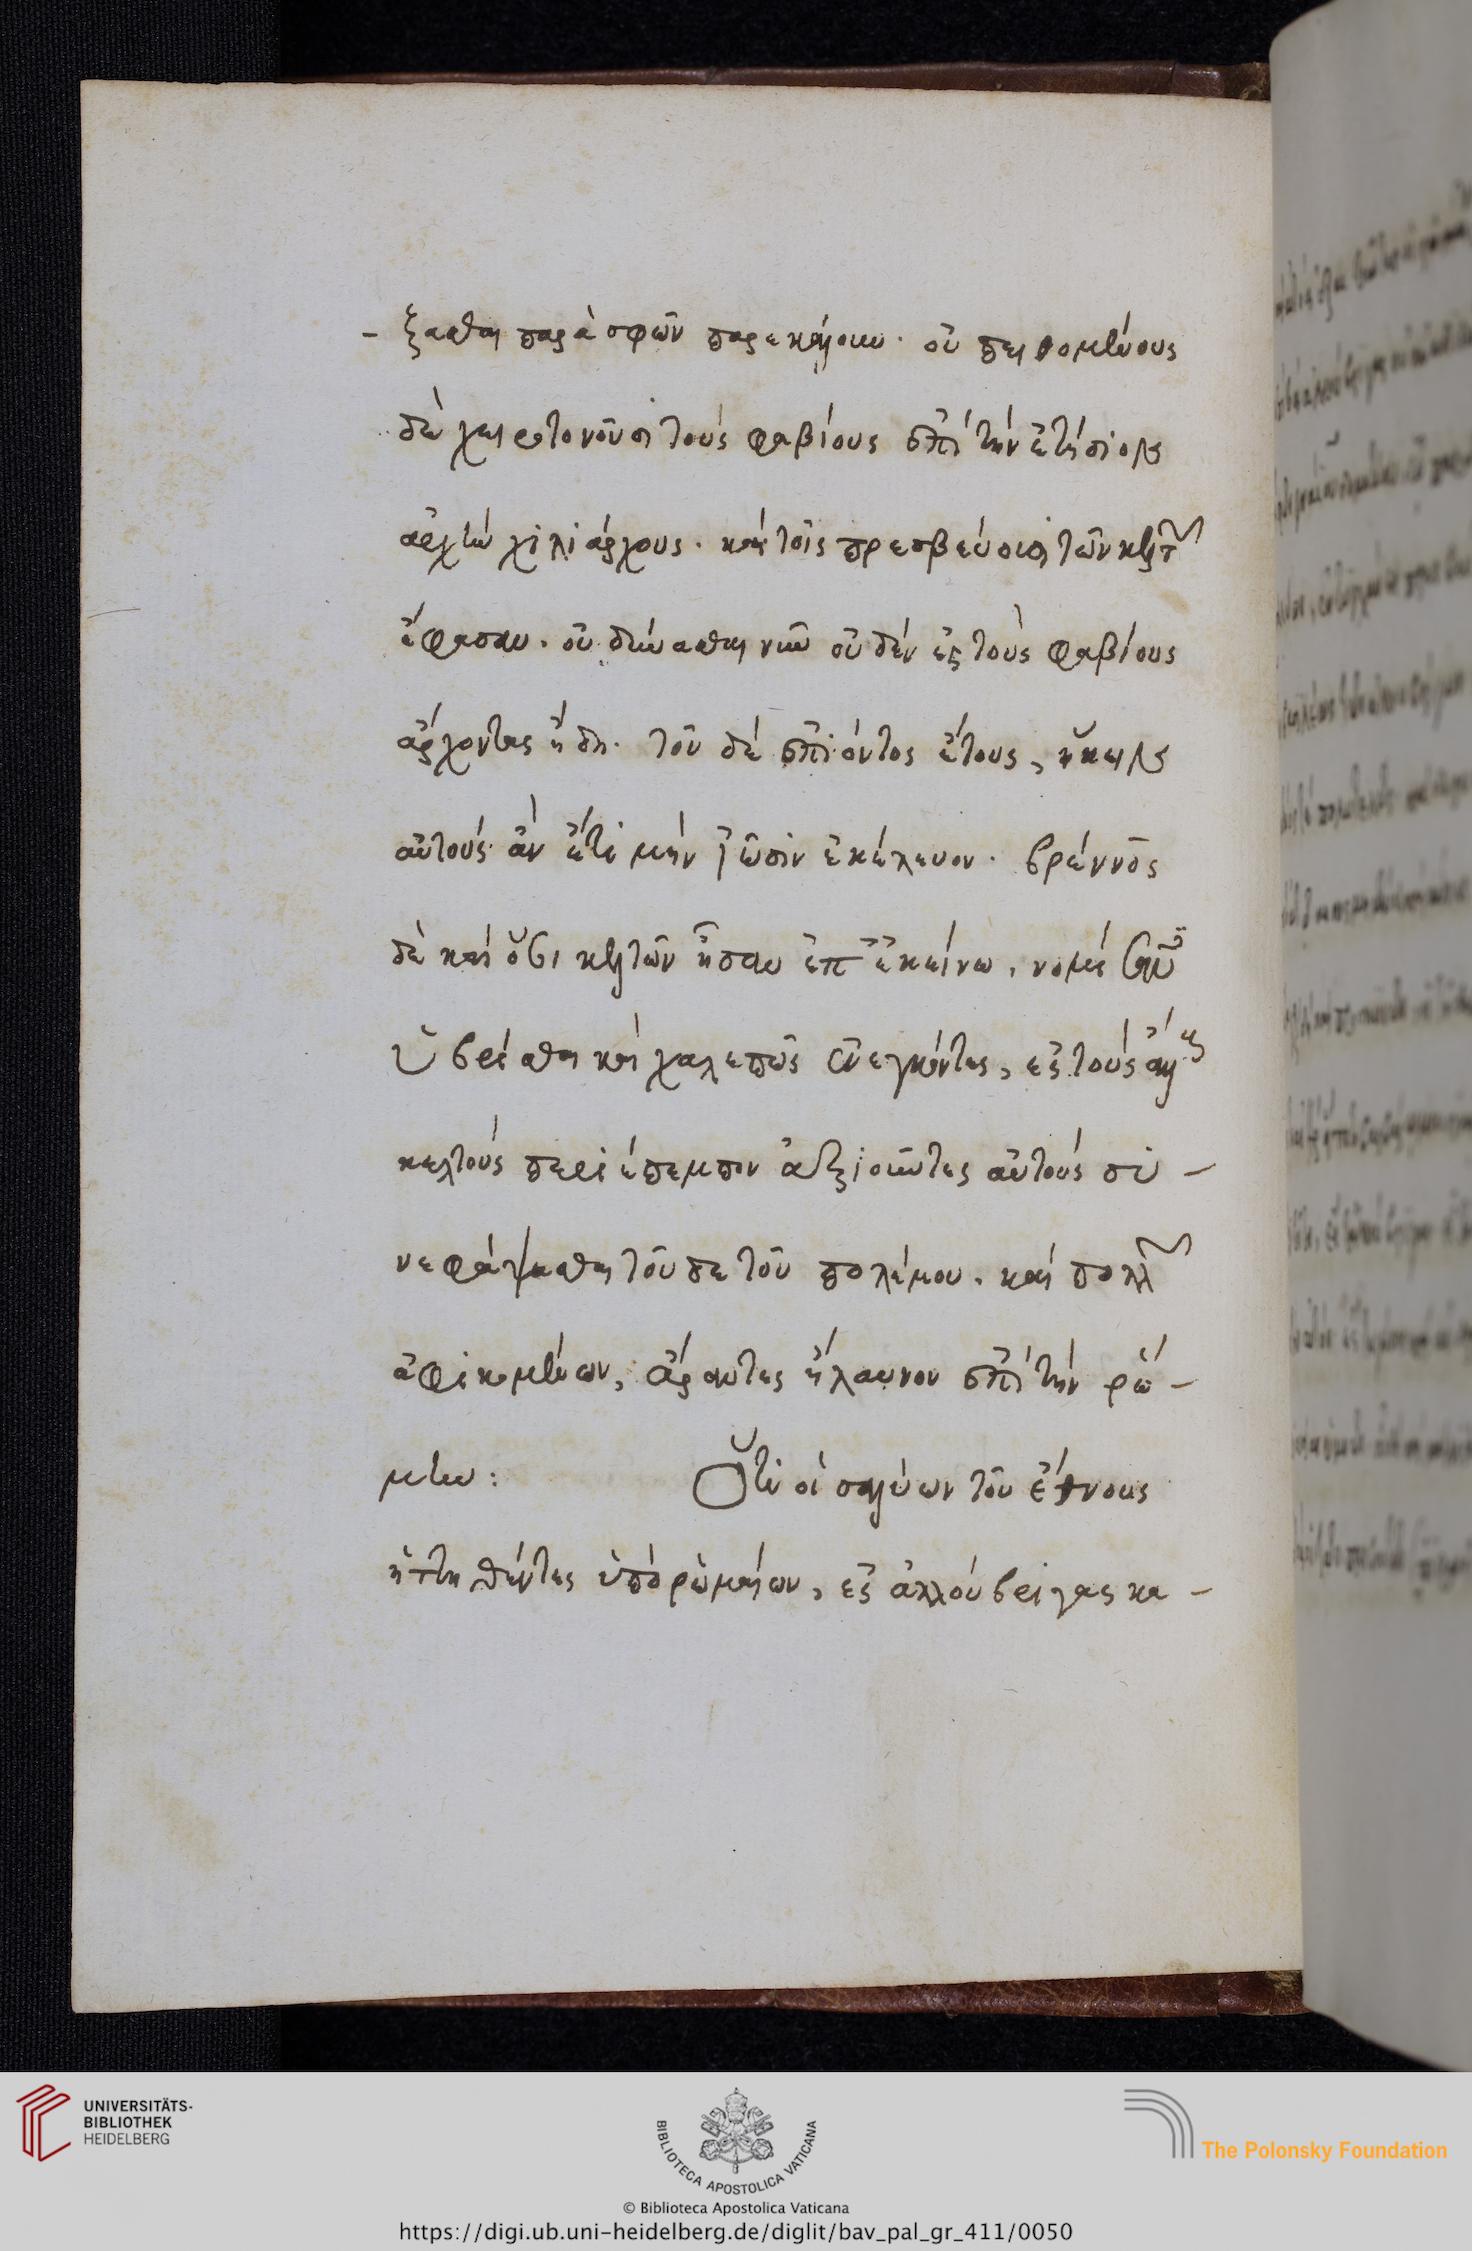 - ξασθαι παρὰ σφῶν παρεκάλουν. οὐ πειθομένους
δὲ χειροτονοῦσι τοὺς φαβίους ἐπὶ τὴν ἐτήσιον
ἀρχὴν χιλιάρχους. καὶ τοῖς πρεσβεύουσι τῶν κελτῶν
ἔφασαν. οὐ δύνασθαι νῦν οὐδὲν ἐς τοὺς φαβίους
ἄρχοντας ἤδη. τοῦ δὲ ἐπιόντος ἔτους, ἥκειν
αὐτοὺς ἂν ἔτι μηνίωσιν ἐκέλευον. βρέννος
δὲ καὶ ὅσοι κελτῶν ἦσαν ἐπ' ἐκείνω, νομίσαντες
ὑβρίσθαι καὶ χαλεπῶς ἐνεγκόντες, ἐς τοὺς ἄλλους
κελτοὺς περιέπεμπον ἀξιοῦντες αὐτοὺς συ-
νεφάψασθαι τοῦδε τοῦ πολέμου. καὶ πολλῶν
ἀφικομένων, ἄραντες ἤλαυνον ἐπὶ τὴν ρώ-
μην: Ὅτι οἱ σαλύων τοῦ ἔθνους
ἡττηθέντες ὑπὸ ρωμαίων, ἐς ἀλλόβριγας κα-
UNIVERSITÄTS-
BIBLIOTHEK
HEIDELBERG
BIBLIOTECA APOSTOLICA VATICANA
The Polonsky Foundation
© Biblioteca Apostolica Vaticana
https://digi.ub.uni-heidelberg.de/diglit/bav_pal_gr_411/0050